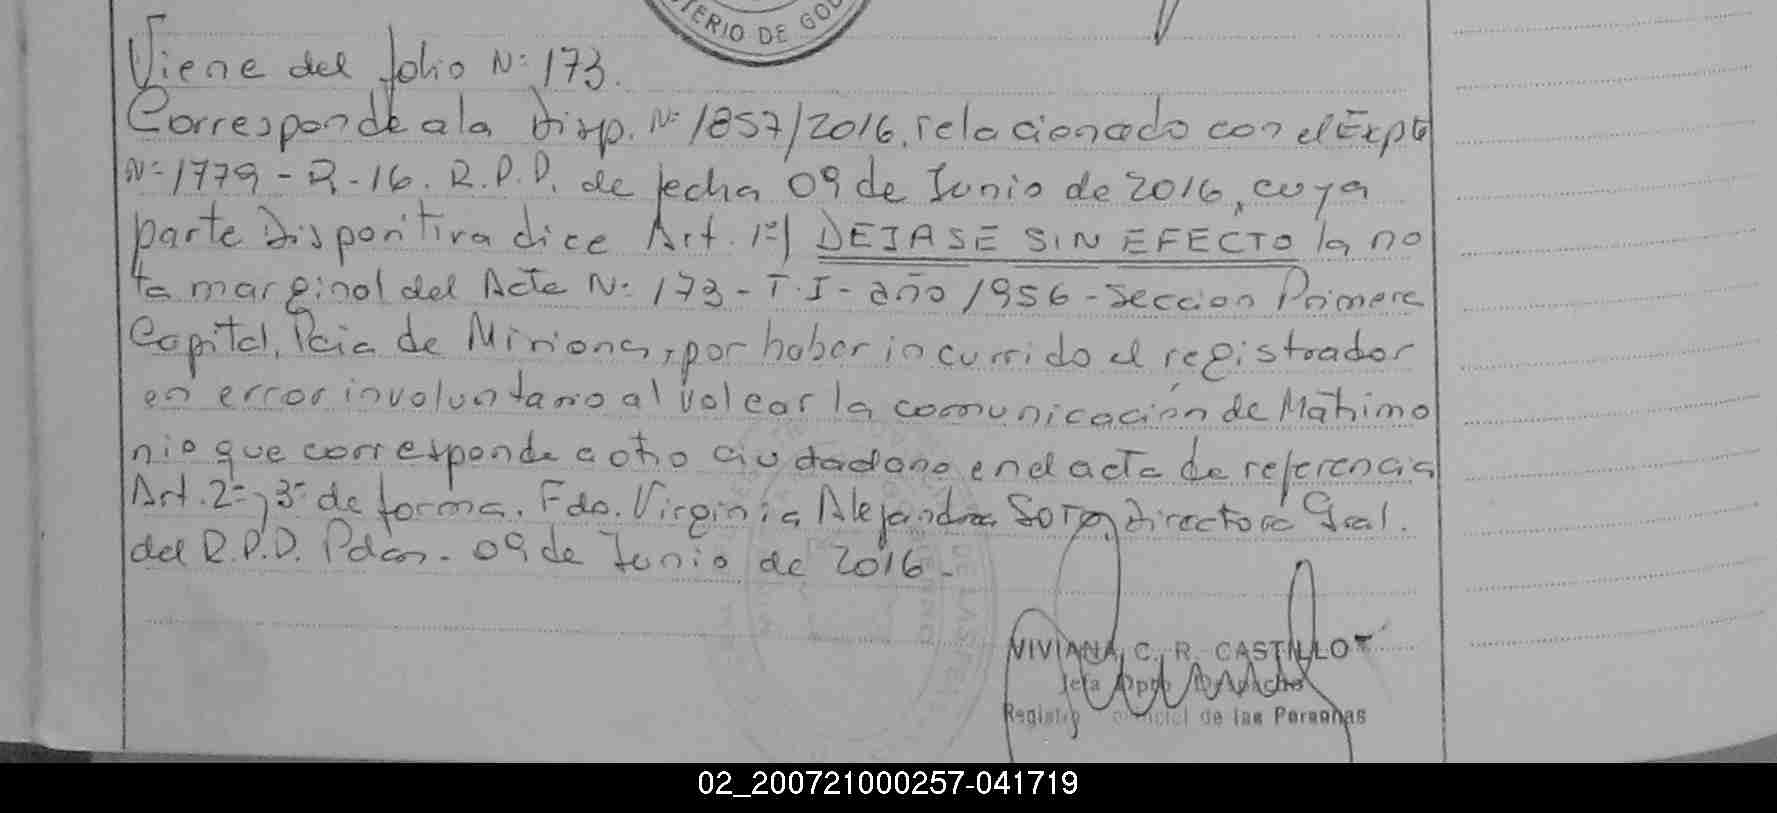 TERIO DE GOB
Viene del folio N: 173.
Corresponde a la Disp. N: 1857/2016, relacionado con el Expte
N: 1779-R-16. R.P.D. de fecha 09 de Junio de 2016, cuya
parte Dispositiva dice Art. 1º) DEJASE SIN EFECTO la no
ta marginal del Acta N: 173-T.I-año 1956-Seccion Primera
Capital, Pcia de Misiones, por haber incurrido el registrador
en error involuntario al volcar la comunicación de Matrimo
nio que corresponde a otro ciudadano en el acta de referencia
Art. 2º y 3º de forma. Fdo. Virginia Alejandra Soto, Directora Gral.
del R.P.D. Pdas. 09 de Junio de 2016.
VIVIANA C. R. CASTILLO
Jefa Dpto Despacho
Registro Provincial de las Personas
02_200721000257-041719